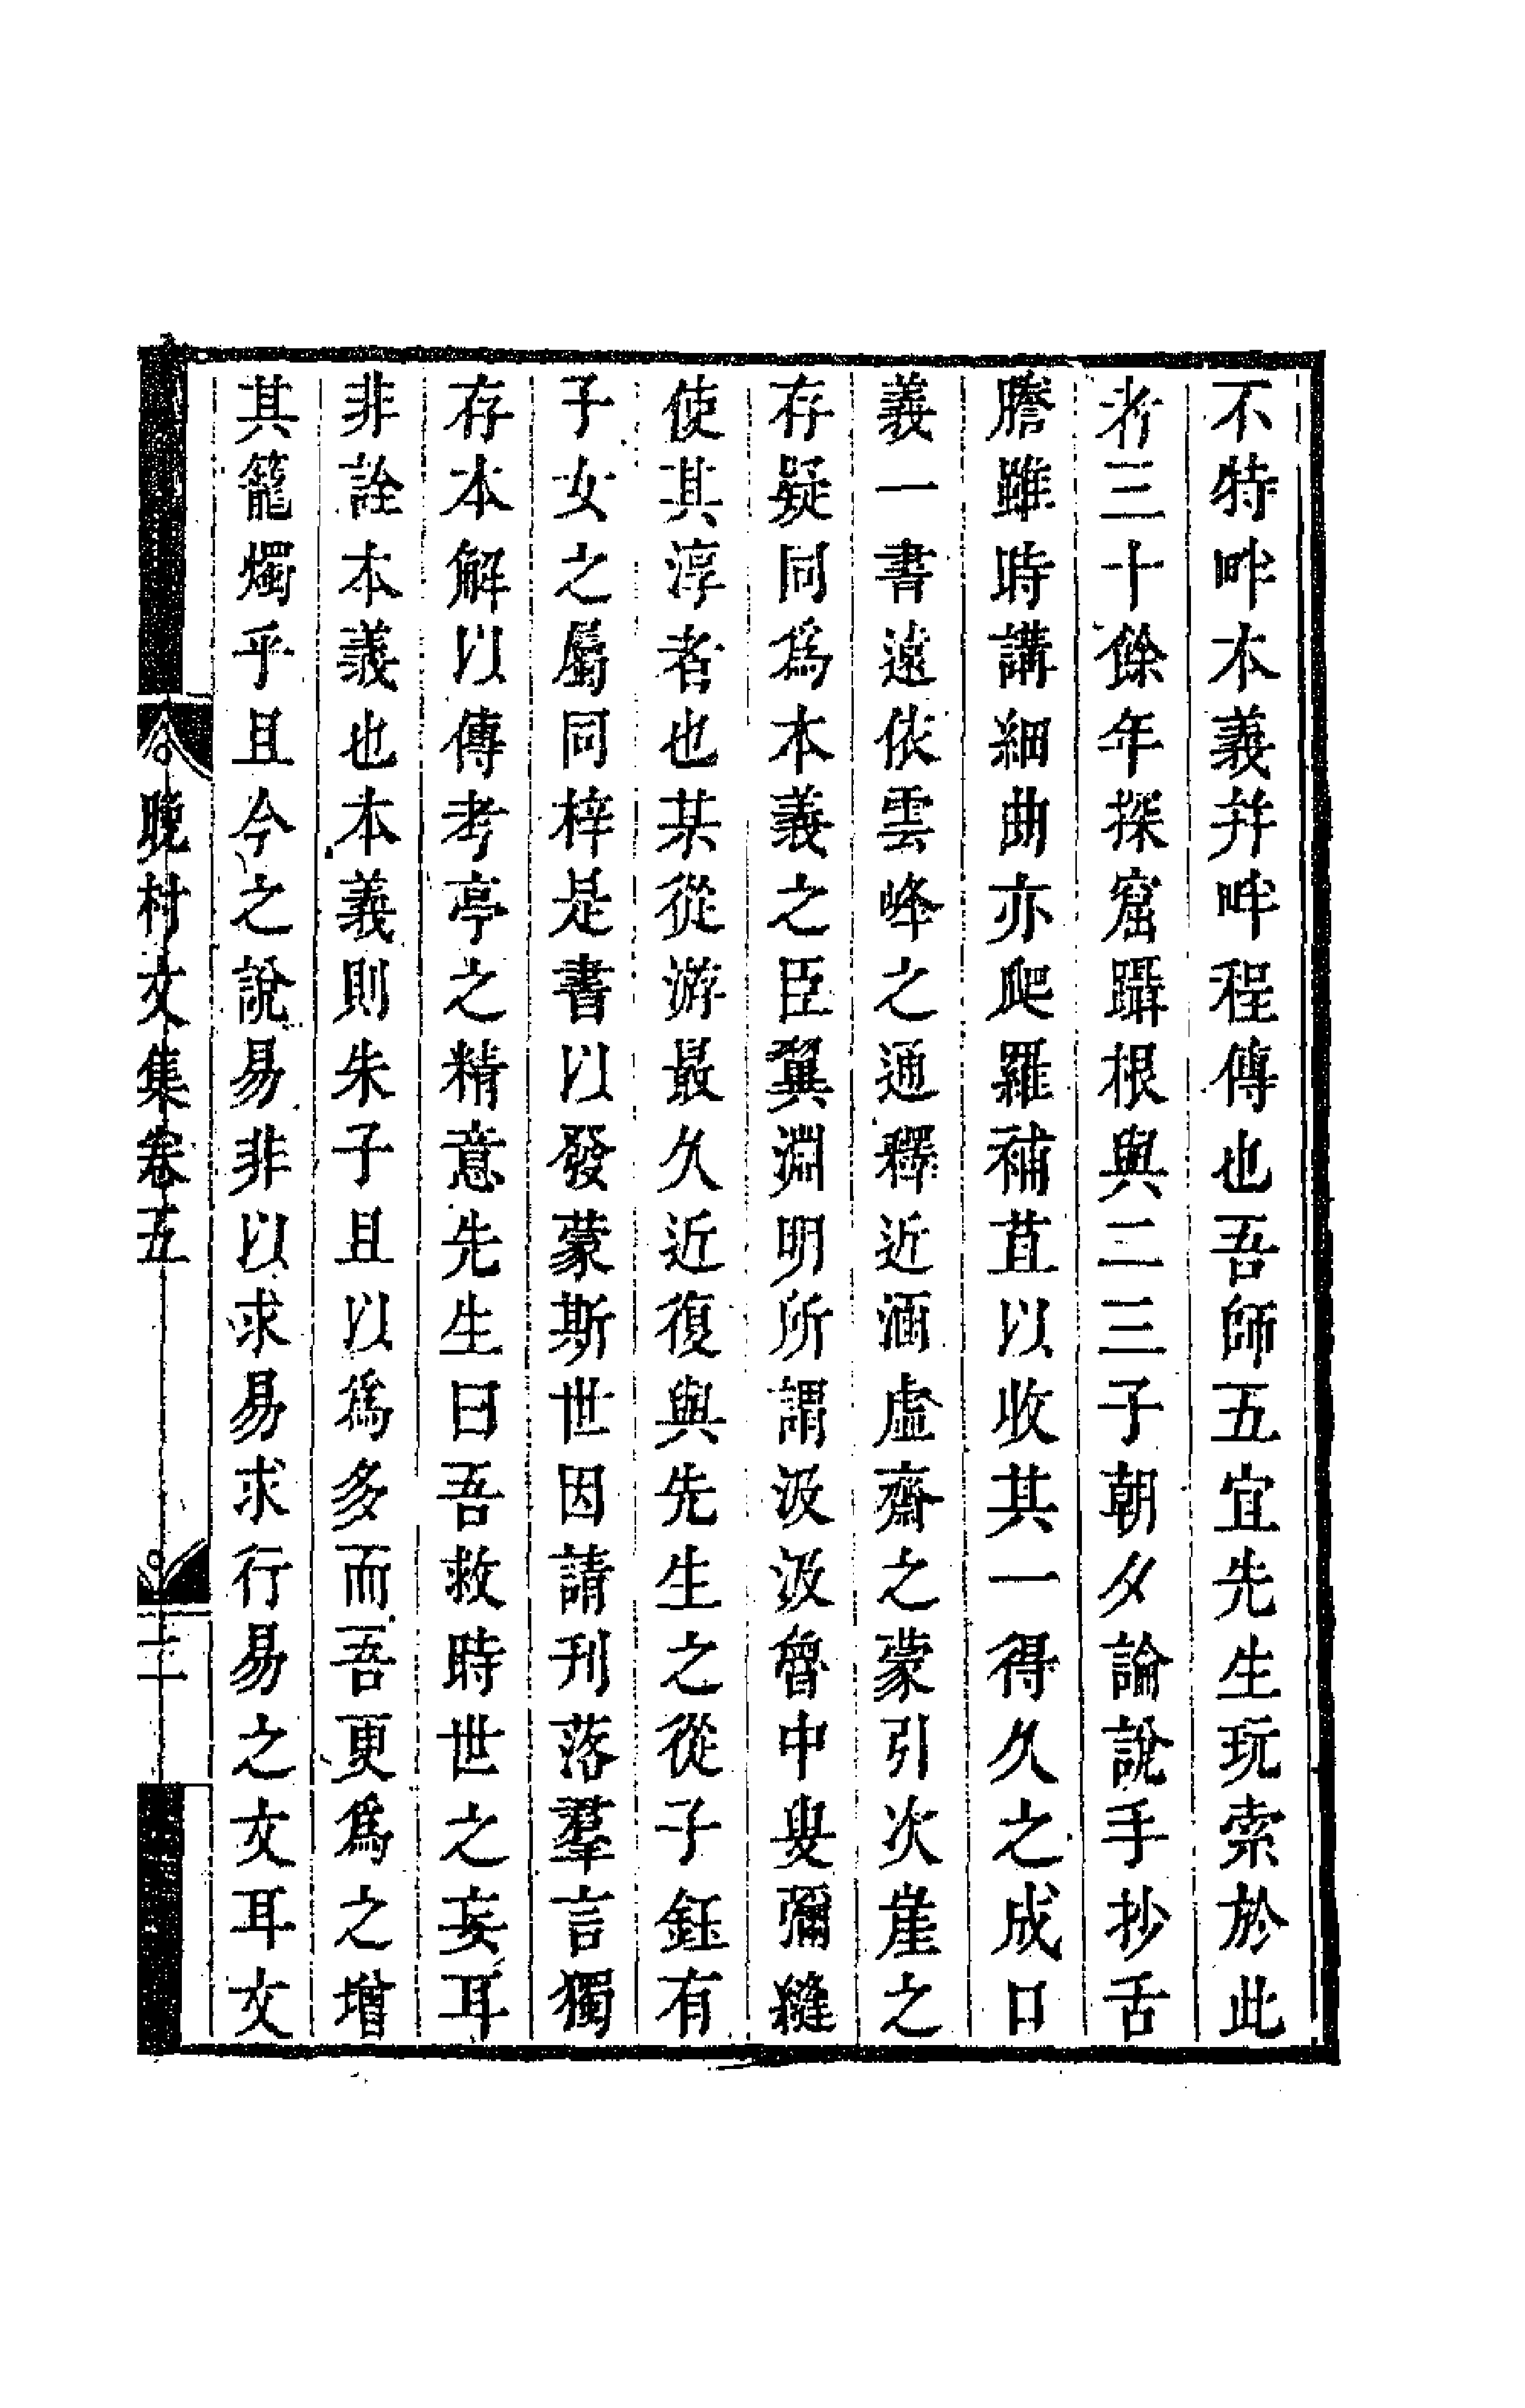 不特畔本義并畔程傳也吾師五宜先生玩索於此
者三十餘年探窟躡根與二三子朝夕論說手抄舌
謄雖時講細曲亦爬羅補苴以收其一得久之成口
義一書遠依雲峰之通釋近涵虛齋之蒙引次崖之
存疑同爲本義之臣翼淵明所謂汲汲魯中叟彌縫
使其淳者也某從游最久近復與先生之從子鈺有
子女之屬同梓是書以發蒙斯世因請刊落羣言獨
存本解以傳考亭之精意先生曰吾救時世之妄耳
非詮本義也本義則朱子且以爲多而吾更爲之增
其籠燭乎且今之說易非以求易求行易之文耳文
晚村文集卷五
二十